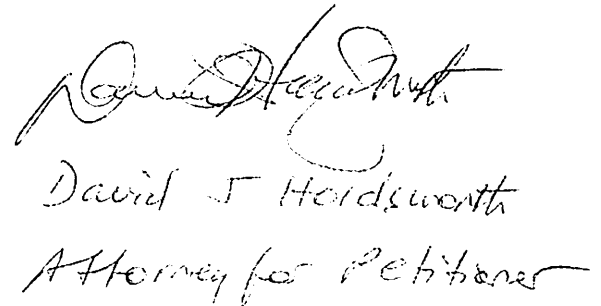 David J Holdsworth
Attorney for Petitioner